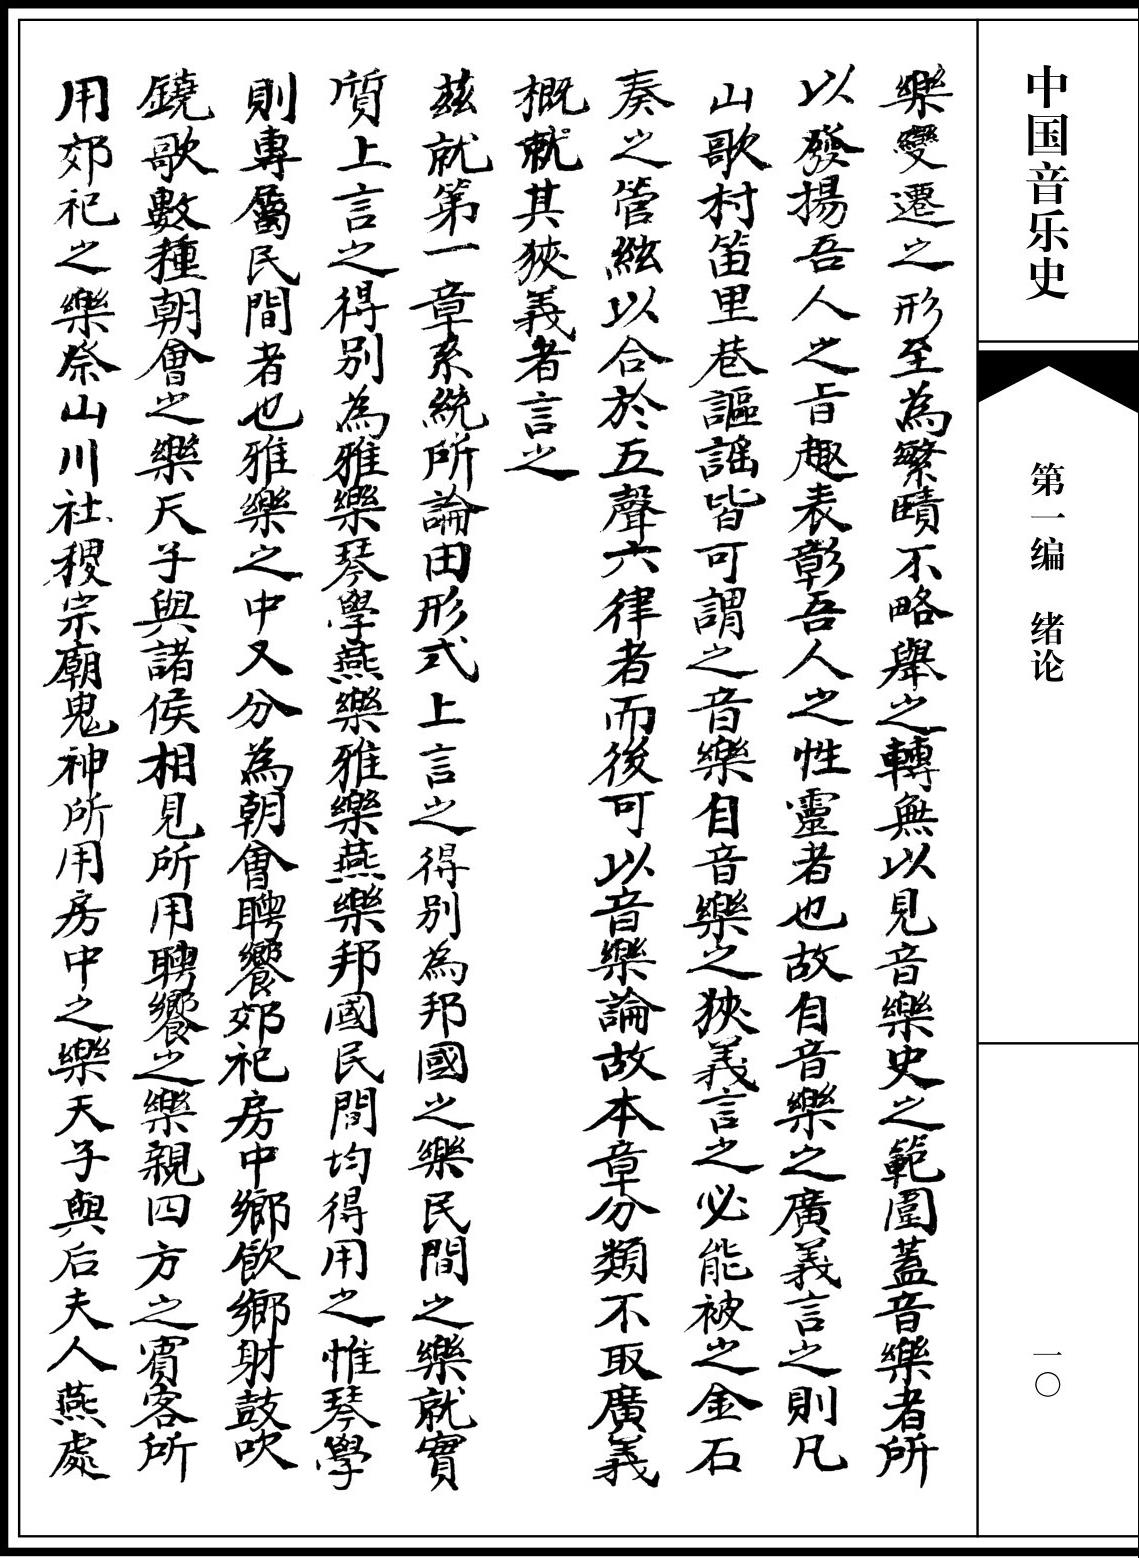 中国音乐史
第一编　绪论
一〇
樂變遷之形至為繁賾不略舉之轉無以見音樂史之範圍蓋音樂者所
以發揚吾人之旨趣表彰吾人之性靈者也故自音樂之廣義言之則凡
山歌村笛里巷謳謡皆可謂之音樂自音樂之狹義言之必能被之金石
奏之管絃以合於五聲六律者而後可以音樂論故本章分類不取廣義
概就其狹義者言之
茲就第一章系統所論田形式上言之得別為邦國之樂民間之樂就實
質上言之得別為雅樂琴學燕樂雅樂燕樂邦國民間均得用之惟琴學
則專屬民間者也雅樂之中又分為朝會聘饗郊祀房中鄉飲鄉射鼓吹
鐃歌數種朝會之樂天子與諸侯相見所用聘饗之樂親四方之賓客所
用郊祀之樂祭山川社稷宗廟鬼神所用房中之樂天子與后夫人燕處